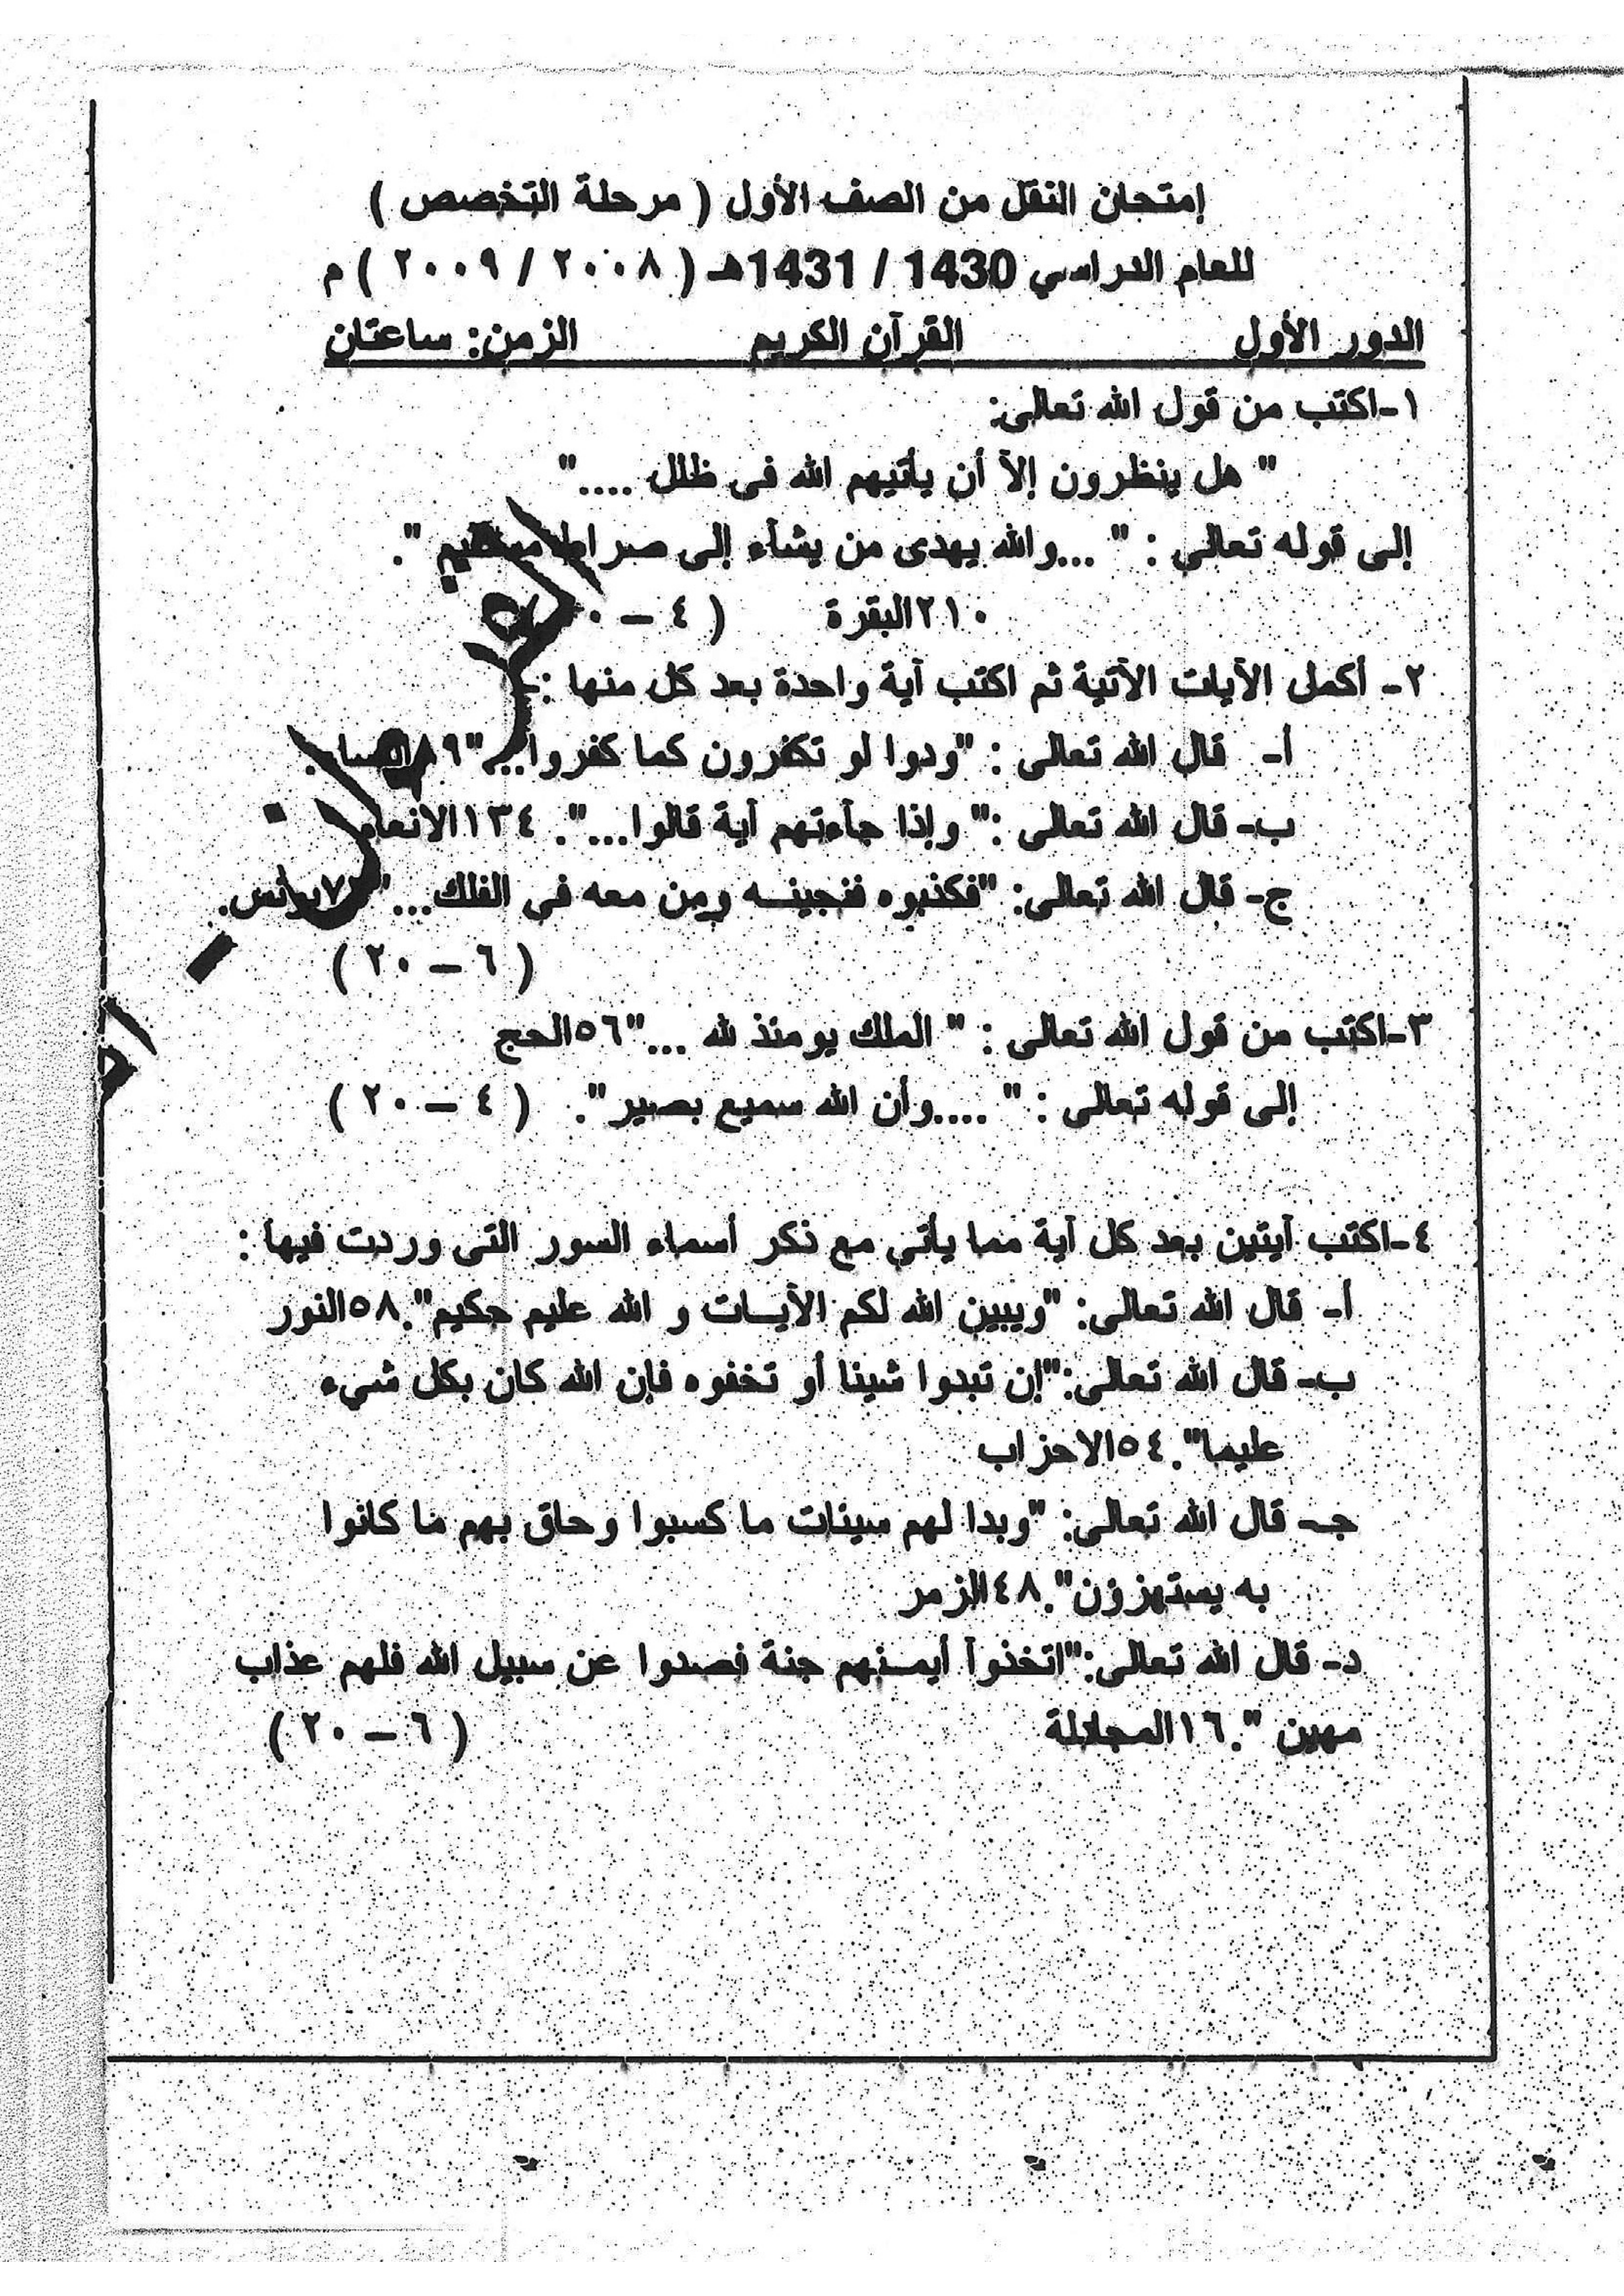 إمتحان النقل من الصف الأول ( مرحلة التخصص )
للعام الدراسي 1430 / 1431هـ ( ٢٠٠٨ / ٢٠٠٩ ) م
الدور الأول القرآن الكريم الزمن: ساعتان
١-اكتب من قول الله تعالى:
" هل ينظرون إلآ أن يأتيهم الله فى ظلل ...."
إلى قوله تعالى : " ...والله يهدى من يشآء إلى صراط مستقيم ".
٢١٠البقرة ( ٤ –
٢- أكمل الآيات الآتية ثم اكتب آية واحدة بعد كل منها :-
أ- قال الله تعالى : "ودوا لو تكفرون كما كفروا..."٨٩
ب- قال الله تعالى :" وإذا جآءتهم آية قالوا...". ١٣٤الانعام
ج- قال الله تعالى: "فكذبوه فنجينـــه ومن معه فى الفلك..." يونس.
( ٦ – ٢٠ )
٣-اكتب من قول الله تعالى : " الملك يومئذ لله ..."٥٦الحج
إلى قوله تعالى : " ....وأن الله سميع بصير". ( ٤ – ٢٠ )
٤-اكتب آيتين بعد كل آية مما يأتى مع ذكر أسماء السور التى وردت فيها :
أ- قال الله تعالى: "ويبين الله لكم الأيـــات و الله عليم حكيم".٥٨النور
ب- قال الله تعالى:"إن تبدوا شينا أو تخفوه فإن الله كان بكل شيء
عليما".٥٤الاحزاب
جـ- قال الله تعالى: "وبدا لهم سينات ما كسبوا وحاق بهم ما كانوا
به يستهزؤن".٤٨الزمر
د- قال الله تعالى:"اتخذوآ أيمـــنهم جنة فصدوا عن سبيل الله فلهم عذاب
مهين ".١٦المجادلة ( ٦ – ٢٠ )